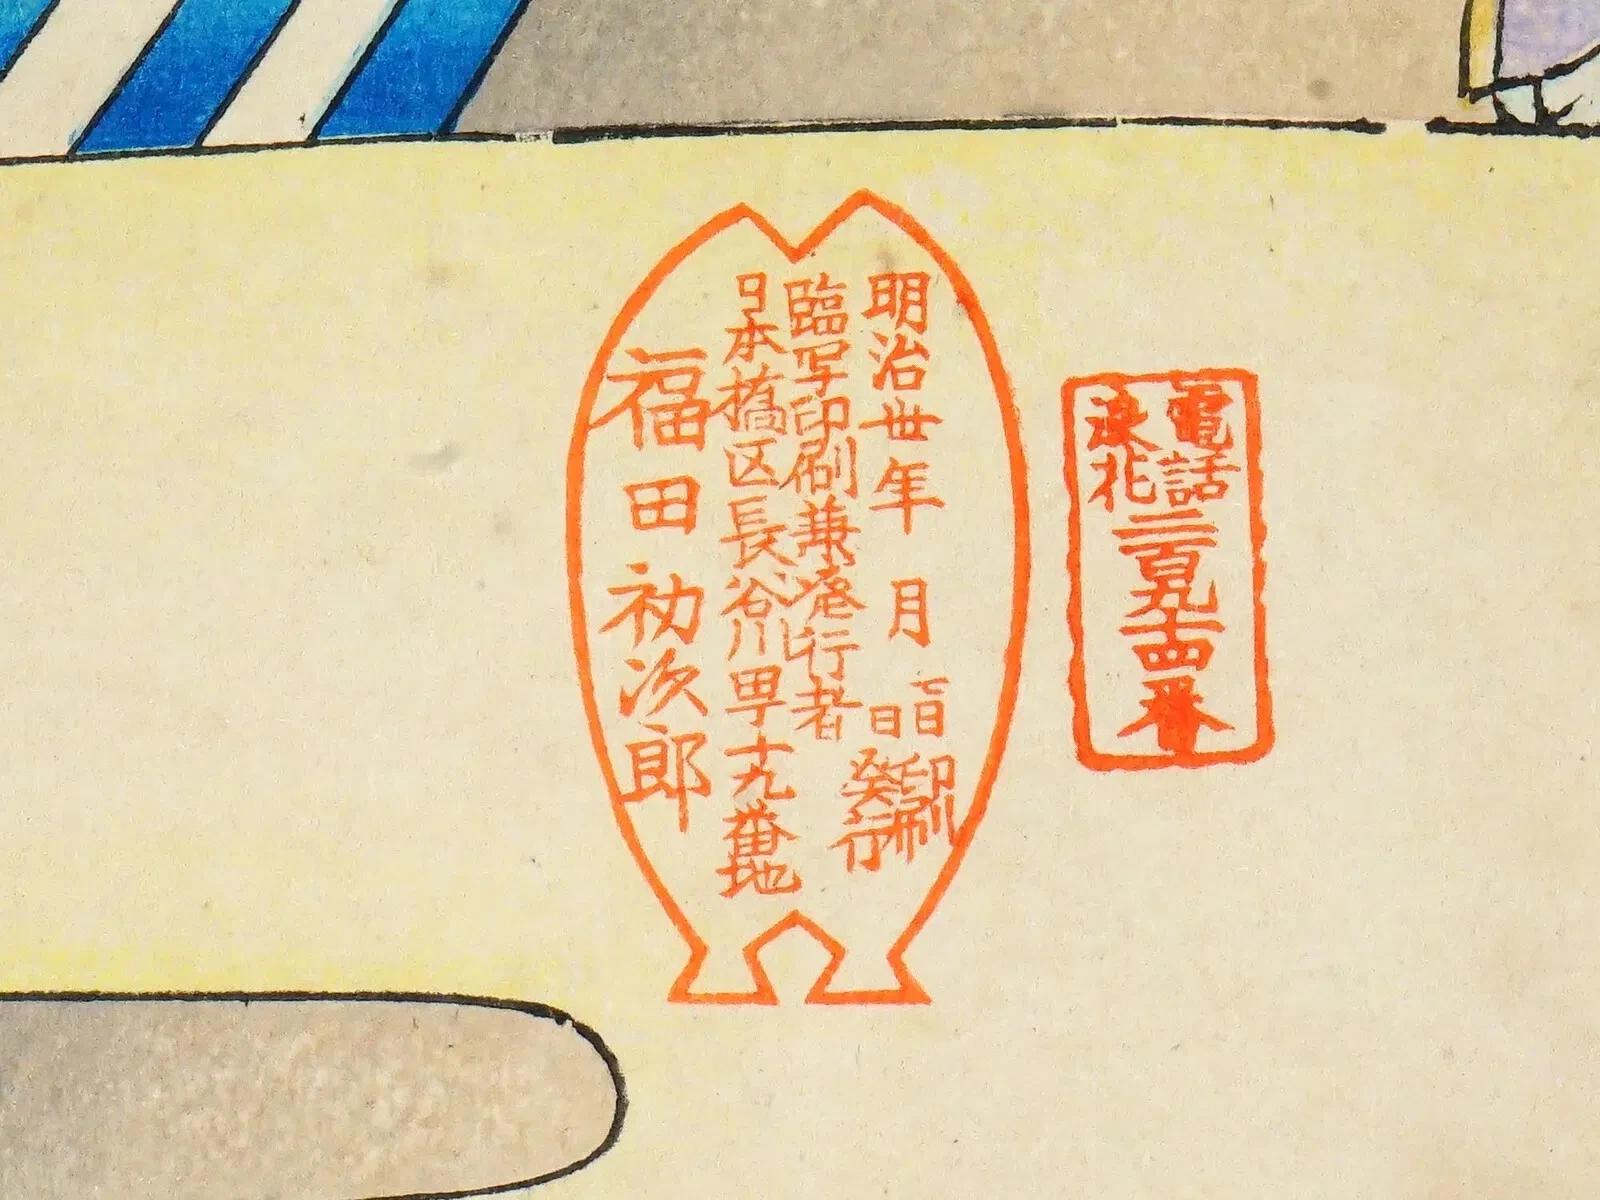 電話
浪花
二百九十四番
明治丗年 月
日印刷
日発行
臨写印刷兼発行者
日本橋区長谷川町十九番地
福田初次郎